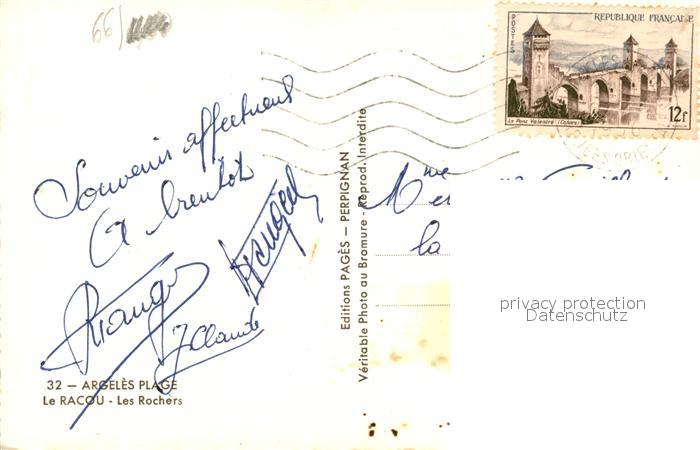 66
Souvenir affectueux
A bientôt
JClaude
32 — ARGELÈS PLAGE
Le RACOU - Les Rochers
Editions PAGÈS — PERPIGNAN
Véritable Photo au Bromure - Reprod. Interdite
REPUBLIQUE FRANÇAISE
POSTES
Le Pont Valentré (Cahors)
12F
Mme
la
privacy protection
Datenschutz